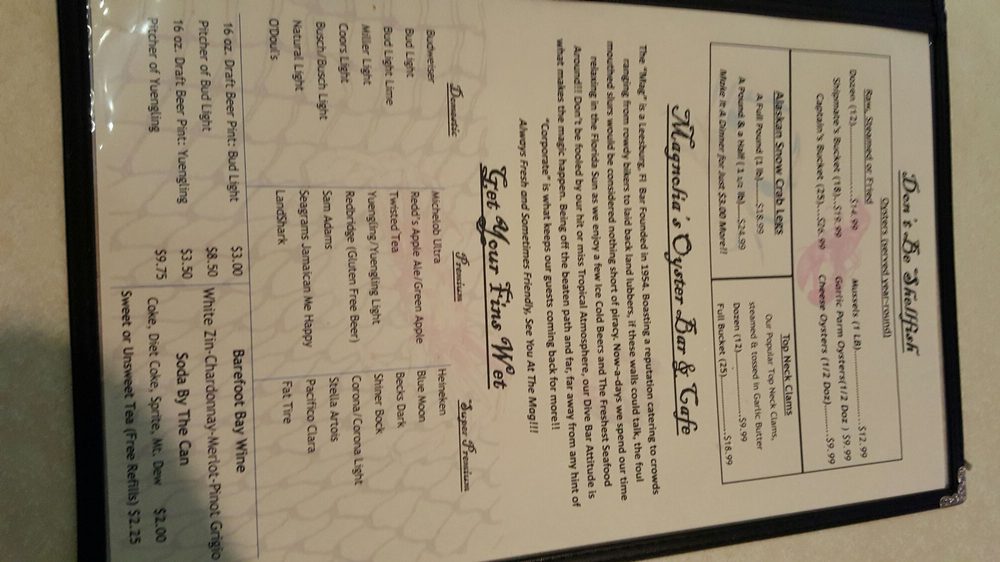 Don's Be Shellfish
Oysters (served year-round)
Raw, Steamed or Fried
Dozen (12)..............$14.99 Mussels (1 LB)..................$12.99
Shipmate's Bucket (18)...$19.99 Garlic Parm Oysters(1/2 Doz ) $9.99
Captain's Bucket (25)....$26.99 Cheese Oysters (1/2 Doz)........$9.99
Alaskan Snow Crab Legs
A Full Pound (1 lb) $18.99
A Pound & a Half ( 1 1/2 lb) $24.99
Make It A Dinner for Just $3.00 More!!
Top Neck Clams
Our Popular Top Neck Clams,
steamed & tossed in Garlic Butter
Dozen (12)..................$9.99
Full Bucket (25).........$18.99
Magnolia's Oyster Bar & Cafe
The "Mag" is a Leesburg, Fl Bar Founded in 1954. Boasting a reputation catering to crowds
ranging from rowdy bikers to laid back land lubbers, if these walls could talk, the foul
mouthed slurs would be considered nothing short of piracy. Now-a-days we spend our time
relaxing in the Florida Sun as we enjoy a few Ice Cold Beers and The Freshest Seafood
Around!! Don't be fooled by our hit or miss Tropical Atmosphere, our Dive Bar Attitude is
what makes the magic happen. Being off the beaten path and far, far away from any hint of
"Corporate" is what keeps our guests coming back for more!!
Always Fresh and Sometimes Friendly, See You At The Mag!!!!
Get Your Fins Wet
Domestic
Budweiser
Bud Light
Bud Light Lime
Miller Light
Coors Light
Busch/Busch Light
Natural Light
O'Doul's
Premium
Michelob Ultra
Redd's Apple Ale/Green Apple
Twisted Tea
Yuengling/Yuengling Light
Redbridge (Gluten Free Beer)
Sam Adams
Seagrams Jamaican Me Happy
LandShark
Super Premium
Heineken
Blue Moon
Becks Dark
Shiner Bock
Corona/Corona Light
Stella Artois
Pacifico Clara
Fat Tire
16 oz. Draft Beer Pint: Bud Light $3.00
Pitcher of Bud Light $8.50
16 oz. Draft Beer Pint: Yuengling $3.50
Pitcher of Yuengling $9.75
Barefoot Bay Wine
White Zin-Chardonnay-Merlot-Pinot Grigio
Soda By The Can
Coke, Diet Coke, Sprite, Mt. Dew $2.00
Sweet or Unsweet Tea (Free Refills) $2.25